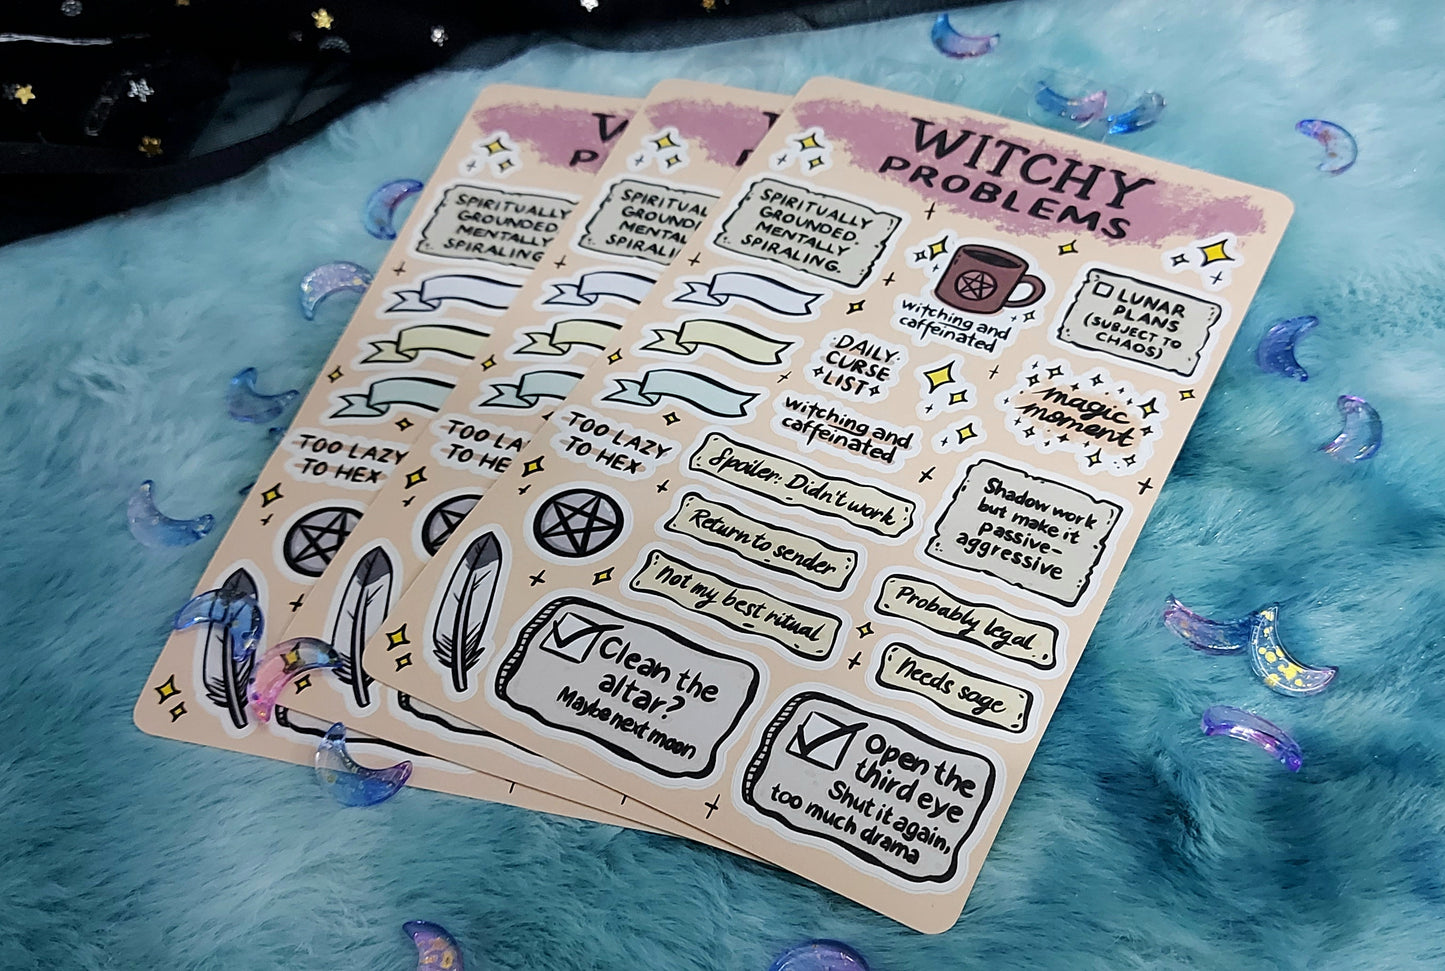 WITCHY
PROBLEMS
SPIRITUALLY
GROUNDED.
MENTALLY
SPIRALING.
witching and
caffeinated
LUNAR
PLANS
(SUBJECT TO
CHAOS)
DAILY
CURSE
LIST
magic
moment
witching and
caffeinated
TOO LAZY
TO HEX
Spoiler: Didn't work
Return to sender
Not my best ritual
Shadow work
but make it
passive-
aggressive
Probably legal
Needs sage
Clean the
altar?
Maybe next moon
Open the
third eye
Shut it again,
too much drama
W
P
SPIRITUAL
GROUNDE
MENTAL
SPIRALI
TOO LA
TO HE
W
P
SPIRITUALLY
GROUNDED.
MENTALLY
SPIRALING.
TOO LAZY
TO HEX